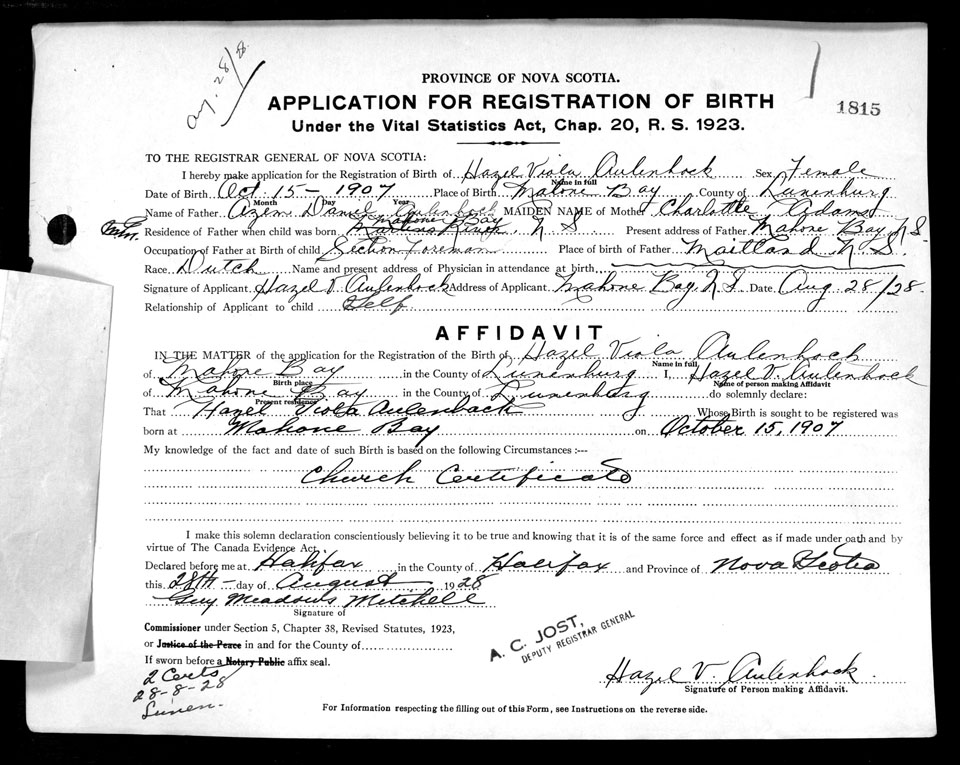 Aug. 28/28.
PROVINCE OF NOVA SCOTIA.
APPLICATION FOR REGISTRATION OF BIRTH
1815
Under the Vital Statistics Act, Chap. 20, R. S. 1923.
TO THE REGISTRAR GENERAL OF NOVA SCOTIA:
I hereby make application for the Registration of Birth of Hazel Viola Aulenbock Sex Female
Name in full
Date of Birth Oct 15 - 1907 Place of Birth Mahone Bay County of Lunenburg
Month Day Year
Name of Father Daniel Aulenbock MAIDEN NAME of Mother Charlotte Adams
Mahone Bay
Residence of Father when child was born Martins River, N S Present address of Father Mahone Bay, N S.
Occupation of Father at Birth of child Section Foreman Place of birth of Father Maitland N S.
Race Dutch Name and present address of Physician in attendance at birth
Signature of Applicant Hazel V. Aulenbock Address of Applicant Mahone Bay N S. Date Aug 28/28.
Relationship of Applicant to child Self
AFFIDAVIT
IN THE MATTER of the application for the Registration of the Birth of Hazel Viola Aulenbock
Name in full
of Mahone Bay in the County of Lunenburg I, Hazel V. Aulenbock
Birth place Name of person making Affidavit
of Mahone Bay in the County of Lunenburg do solemnly declare:
Present residence
That Hazel Viola Aulenback Whose Birth is sought to be registered was
born at Mahone Bay on October 15, 1907
My knowledge of the fact and date of such Birth is based on the following Circumstances :---
Church Certificate
I make this solemn declaration conscientiously believing it to be true and knowing that it is of the same force and effect as if made under oath and by
virtue of The Canada Evidence Act.
Declared before me at Halifax in the County of Halifax and Province of Nova Scotia
this 28th - day of August 1928
Guy Meadows Mitchell
Signature of
Commissioner under Section 5, Chapter 38, Revised Statutes, 1923,
or Justice of the Peace in and for the County of
If sworn before a Notary Public affix seal.
A. C. JOST,
DEPUTY REGISTRAR GENERAL
2 Certs
28-8-28
Lunen.
Hazel V. Aulenbock.
Signature of Person making Affidavit.
For Information respecting the filling out of this Form, see Instructions on the reverse side.